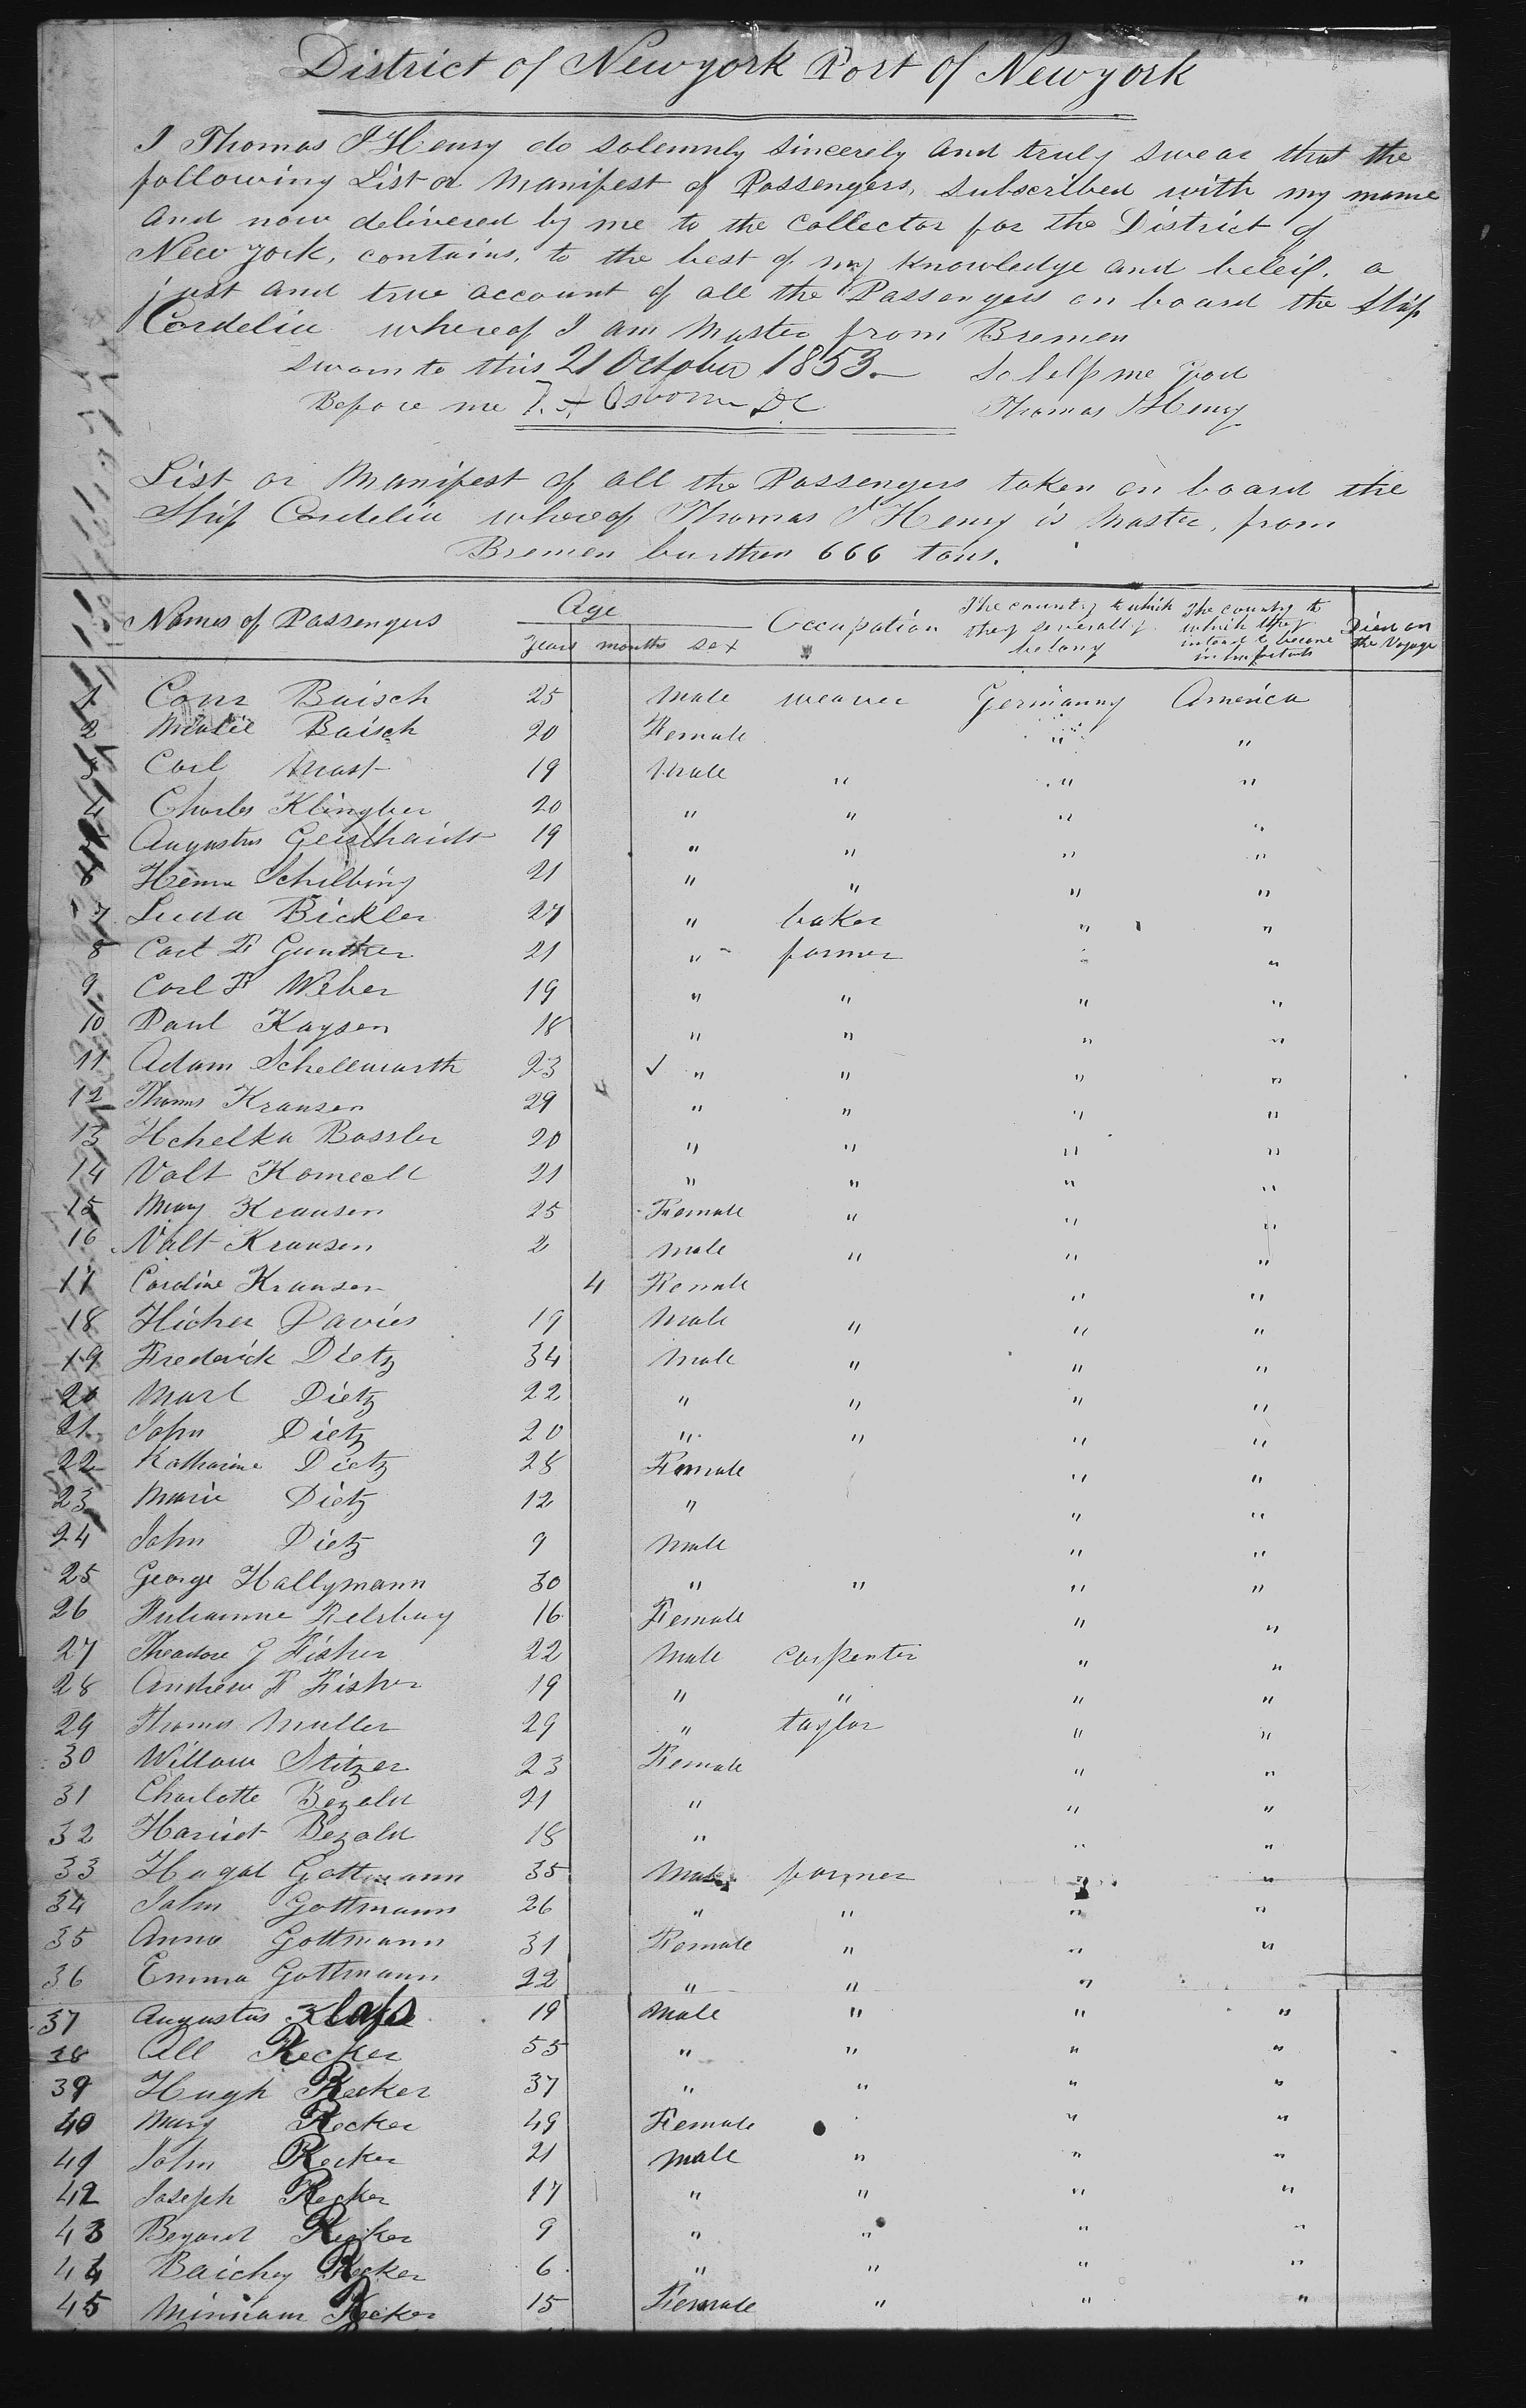 District of Newyork Port of Newyork
I Thomas J Henry do solemnly sincerely and truly swear that the
following List or Manifest of Passengers, subscribed with my name
and now delivered by me to the Collector for the District of
New york, contains, to the best of my knowledge and beleif, a
just and true account of all the Passengers on board the Ship
Cordelia whereof I am Master from Bremen
sworn to this 21 October 1853. So help me God
Before me Osborn DC Thomas J Henry
List or Manifest of all the Passengers taken on board the
Ship Cordelia whereof Thomas J Henry is Master, from
Bremen burthen 666 tons.
Names of Passengers Age years months sex Occupation The country to which they severally belong The country to which they intend to become inhabitants Died on the Voyage
1 Conr Baisch 25 Male weaver Germanny America
2 Baisch 20 Female " "
3 Carl Mast 19 Male " " "
4 Charles Klingber 20 " " " "
5 Augustus 19 " " " "
6 Schilbing 21 " " " "
7 Luda Bickler 27 " baker " "
8 Carl F Gunther 21 " farmer " "
9 Carl F Weber 19 " " " "
10 Paul Kaysen 18 " " " "
11 Adam Schellwarth 23 " " " "
12 Thoms Kransen 29 " " " "
13 Bossler 20 " " " "
14 Valt 21 " " " "
15 Mary Kransen 25 Female " " "
16 Valt Kransen 2 Male " " "
17 Caroline Kransen 4 Female " "
18 Davies 19 Male " " "
19 Frederick Dietz 34 Male " " "
20 Marl Dietz 22 " " " "
21 John Dietz 20 " " " "
22 Katharine Dietz 28 Female " "
23 Marie Dietz 12 " " "
24 John Dietz 9 Male " "
25 George Hallymann 30 " " " "
26 16 Female " "
27 Theodore J Fisher 22 Male carpenter " "
28 Andrew F Fisher 19 " " " "
29 Thomas Muller 29 " taylor " "
30 Stitzer 23 Female " "
31 Charlotte Bezold 21 " " "
32 Harriet Bezold 18 " " "
33 Gottmann 35 Male farmer " "
34 John Gottmann 26 " " " "
35 Anna Gottmann 31 Female " " "
36 Emma Gottmann 22 " " " "
37 Augustus 19 Male " " "
38 Recker 53 " " " "
39 Hugh Recker 37 " " " "
40 Mary Recker 49 Female " "
41 John Recker 21 Male " " "
42 Joseph Recker 17 " " " "
43 Recker 9 " " " "
44 Recker 6 " " " "
45 Recker 15 Female " " "